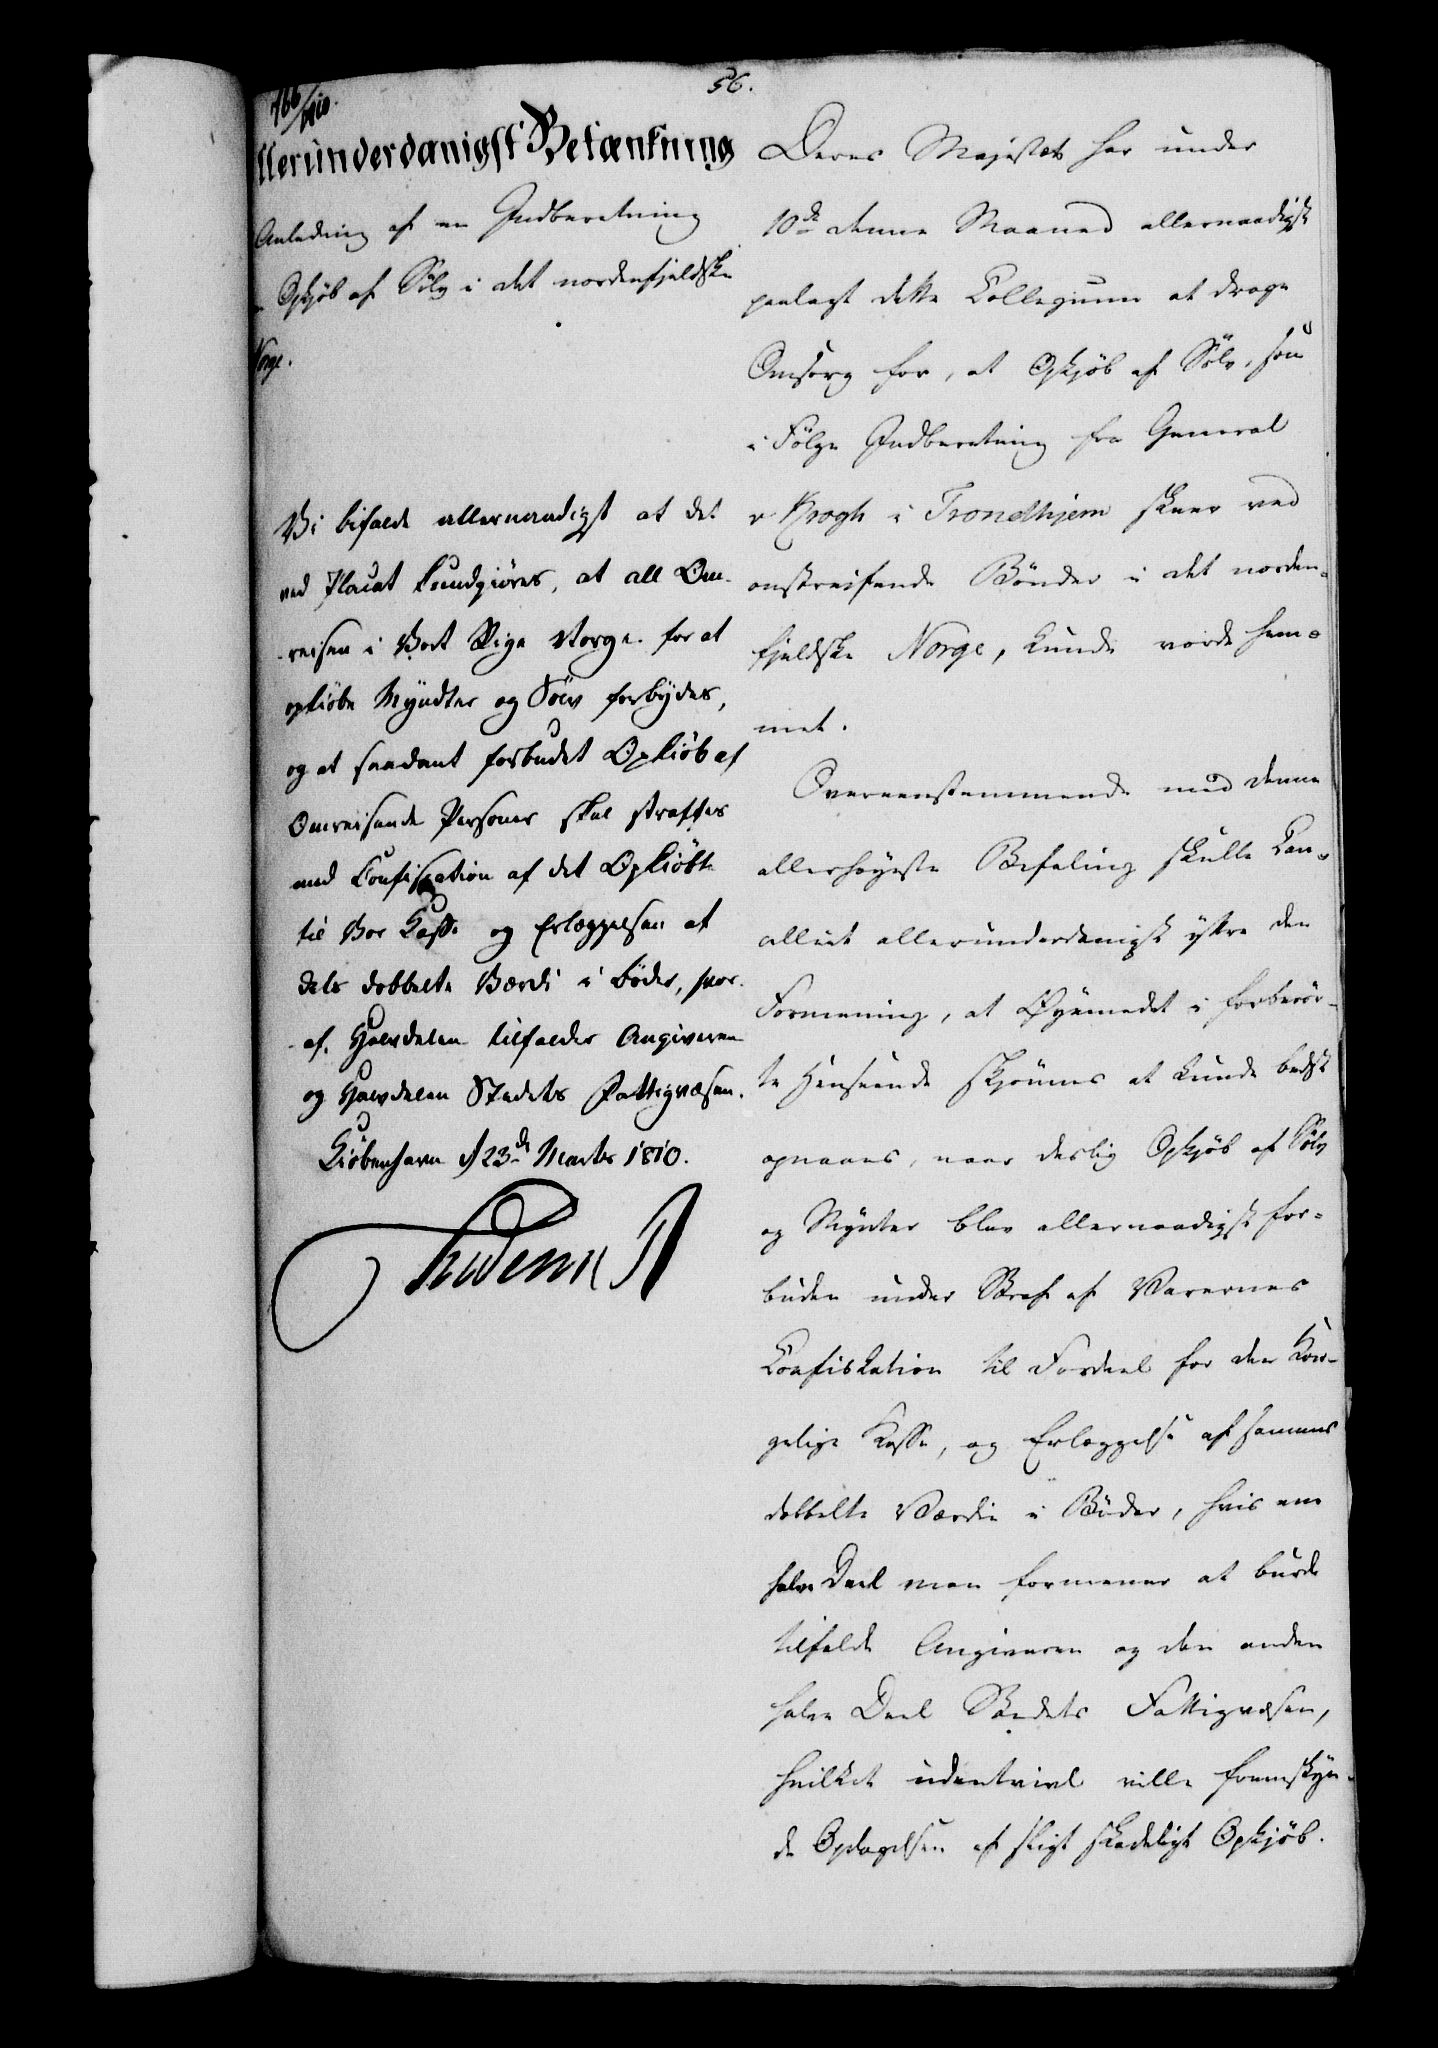 56.
766/1810.
llerunderdanigst Betænkning
Anledning af en Indberetning
Opkjöb af Sölv i det nordenfjeldske
Norge.
Vi bifalde allernaadigst at det
ved Placat kundgiöres, at all Om-
reisen i Vort Rige Norge for at
opkiöbe Myndter og Sölv forbydes,
og at saadant forbudet Opkiöb af
Omreisende Personer skal straffes
med Confiscation af det Opkiöbte
til Vor Casse og Erlæggelsen af
dets dobbelte Værdi i böder, hvor-
af Halvdelen tilfalder Angiveren
og Halvdelen Stedets Fattigvæsen.
Kiöbenhavn d 23de Marts 1810.
Frideric R
Deres Majestæt har under
10de denne Maaned allernaadigst
paalagt dette Collegium at drage
Omsorg for, at Opkjöb af Sölv, som
i Fölge Indberetning fra General
v Krogh i Trondhjem skeer ved
omstreifende Bönder i det norden-
fjeldske Norge, kunde vorde hem-
met.
Overeensstemmende med denne
allerhöyeste Befaling skulle Can-
celliet allerunderdanigst yttre den
Formening, at Øyemedet i forberör-
te Henseende skjönnes at kunde bedst
opnaaes, naar deslig Opkjöb af Sölv
og Mynter blev allernaadigst for-
buden under Straf af Varernes
Confiskation til Fordeel for den Kon-
gelige Kasse, og Erlæggelse af sammes
dobbelte Værdie i Böder, hvis ene
halve Deel man formener at burde
tilfalde Angiveren og den anden
halve Deel Stedets Fattigvæsen,
hvilket udentvivl ville fremskyn-
de Opdagelsen af sligt skadeligt Opkjöb.